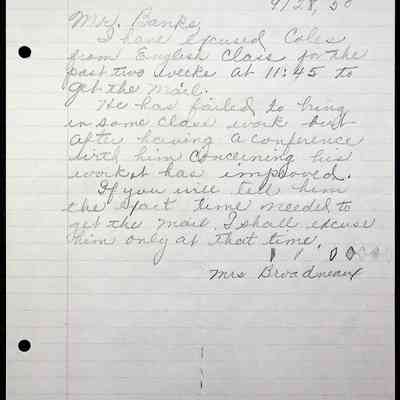 9/28, 50
Mr. Banks,
I have excused Coles
from English Class for the
past two weeks at 11:45 to
get the mail.
He has failed to bring
in some class work but
after having a conference
with him concerning his
work it has improved.
If you will tell him
the exact time needed to
get the mail I shall excuse
him only at that time.
Mrs Broadneaux